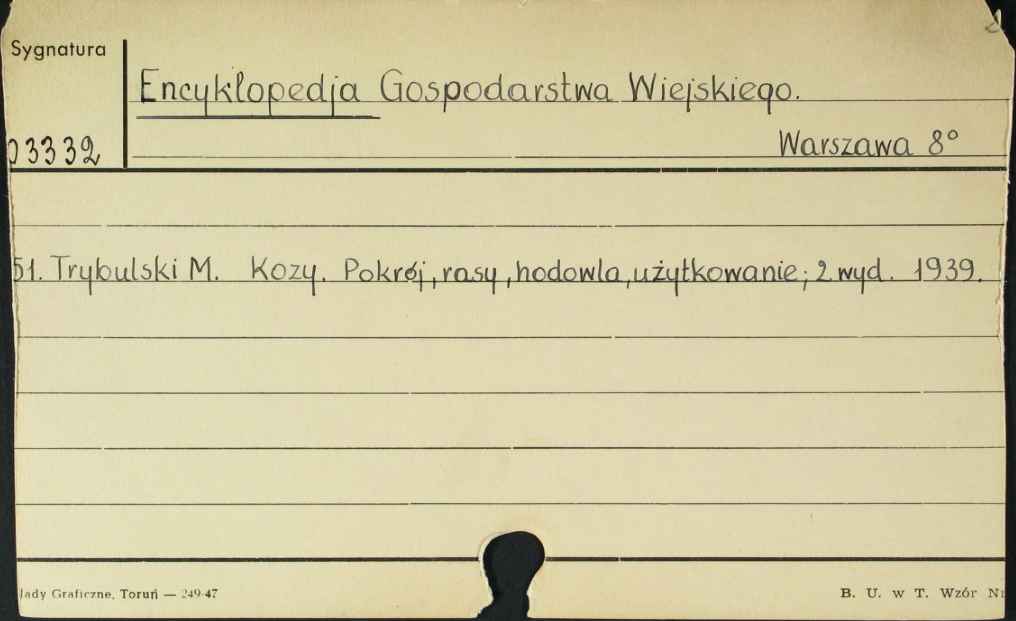 Sygnatura
Encyklopedja Gospodarstwa Wiejskiego.
03332
Warszawa 8°
51. Trybulski M. Kozy. Pokrój, rasy, hodowla, użytkowanie; 2 wyd. 1939.
łady Graficzne, Toruń — 249-47
B. U. w T. Wzór Nr